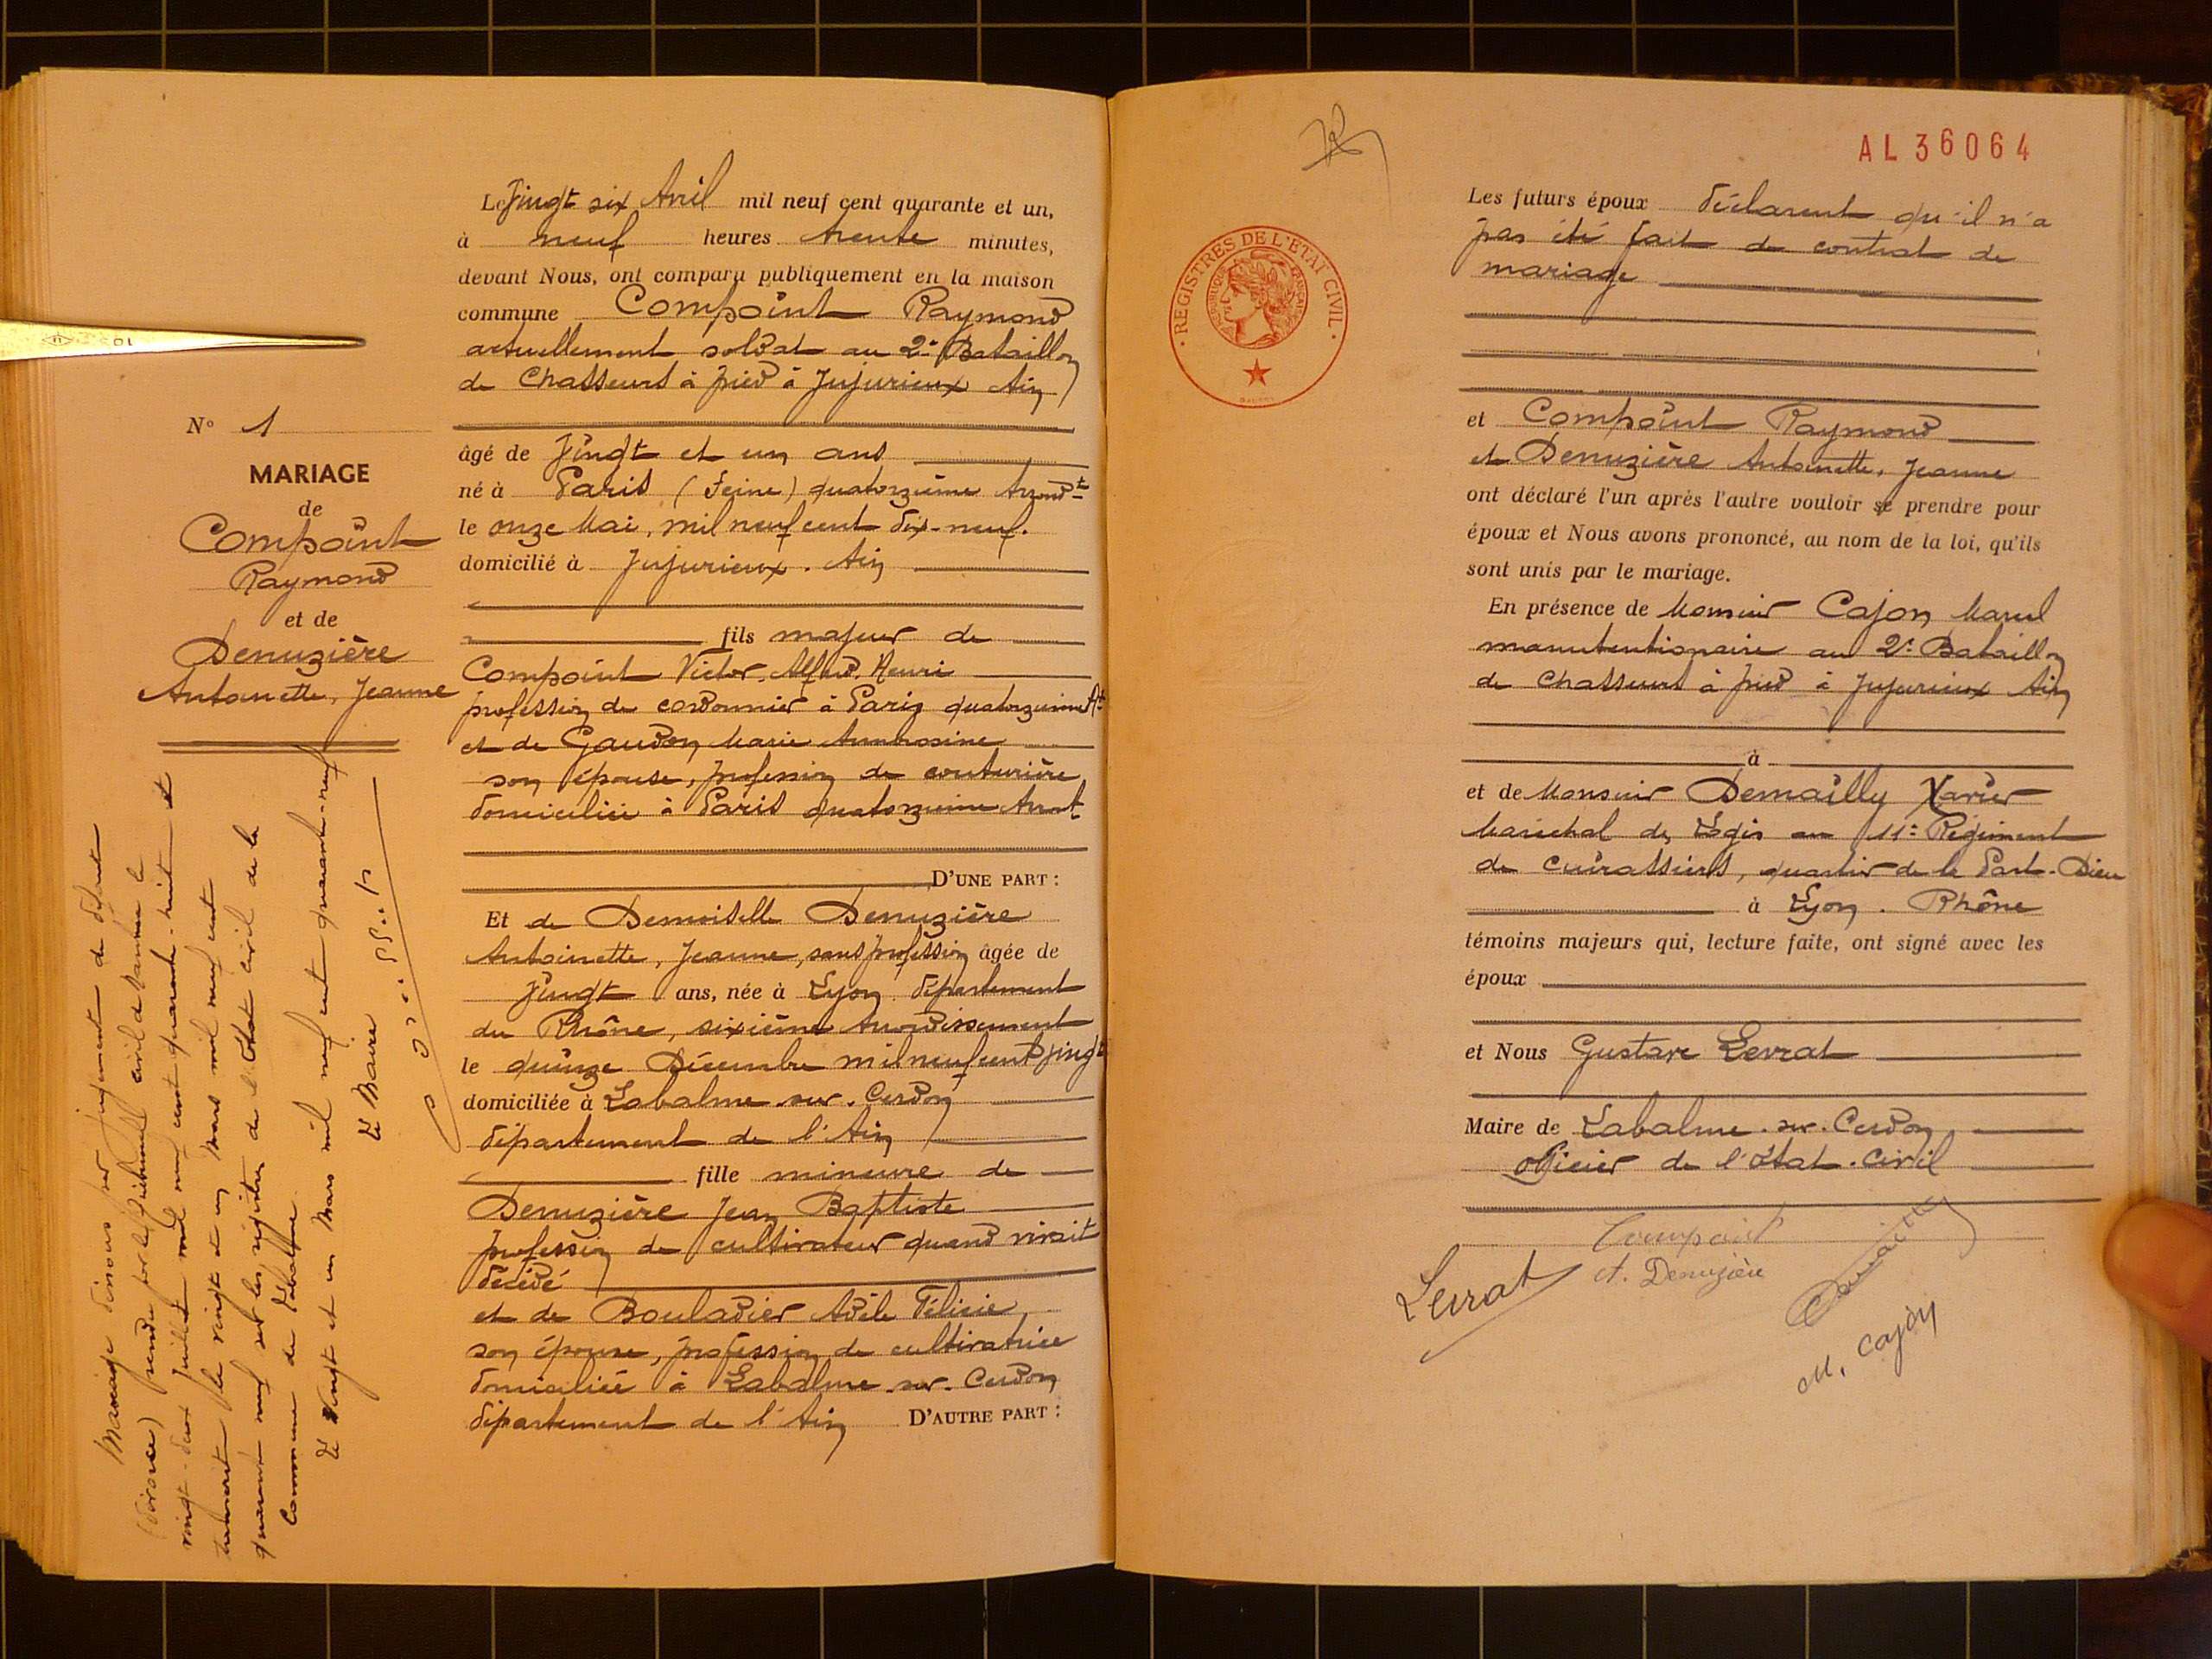 N° 1
MARIAGE
de
Compoint
Raymond
et de
Denuzière
Antoinette, Jeanne
Mariage dissous par jugement de défaut
(divorce) rendu par le Tribunal civil de le
vingt-deux juillet mil neuf cent quarante-huit et
transcrit le vingt et un Mars mil neuf cent
quarante neuf sur les registres de l'état civil de la
Commune de Labalme.
Le vingt et un Mars mil neuf cent quarante-neuf
Le Maire
Le Vingt six Avril mil neuf cent quarante et un,
à neuf heures trente minutes,
devant Nous, ont comparu publiquement en la maison
commune Compoint Raymond
actuellement soldat au 2e Bataillon
de Chasseurs à pied à Jujurieux Ain
âgé de Vingt et un ans
né à Paris (Seine) quatorzième Arrondt
le onze Mai, mil neuf cent dix-neuf.
domicilié à Jujurieux. Ain
fils majeur de
Compoint Victor, Alfred, Henri
profession de cordonnier à Paris quatorzième At
et de Gaudon Marie Ambrosine
son épouse, profession de couturière
domiciliée à Paris quatorzième Arrt
D'UNE PART :
Et de Demoiselle Denuzière
Antoinette, Jeanne, sans profession âgée de
Vingt ans, née à Lyon département
du Rhône, sixième Arrondissement
le quinze Décembre mil neuf cent vingt
domiciliée à Labalme-sur-Cerdon
département de l'Ain
fille mineure de
Denuzière Jean Baptiste
profession de cultivateur quand vivait
décédé
et de Bouladier Adèle Félicie,
son épouse, profession de cultivatrice
domiciliée à Labalme-sur-Cerdon
département de l'Ain D'AUTRE PART :
AL 36064
REGISTRES DE L'ETAT CIVIL
REPUBLIQUE FRANÇAISE
Les futurs époux déclarent qu'il n'a
pas été fait de contrat de
mariage
et Compoint Raymond
et Denuzière Antoinette, Jeanne
ont déclaré l'un après l'autre vouloir se prendre pour
époux et Nous avons prononcé, au nom de la loi, qu'ils
sont unis par le mariage.
En présence de Monsieur Cajon Marcel
manutentionaire au 2e Bataillon
de Chasseurs à pied à Jujurieux Ain
à
et de Monsieur Demailly Xavier
Maréchal des Logis au 11e Régiment
de cuirassiers, quartier de la Part-Dieu
à Lyon. Rhône
témoins majeurs qui, lecture faite, ont signé avec les
époux
et Nous Gustave Levrat
Maire de Labalme-sur-Cerdon
officier de l'état-civil
Compoint
A. Denuzière
Levrat
Demailly
M. Cajon